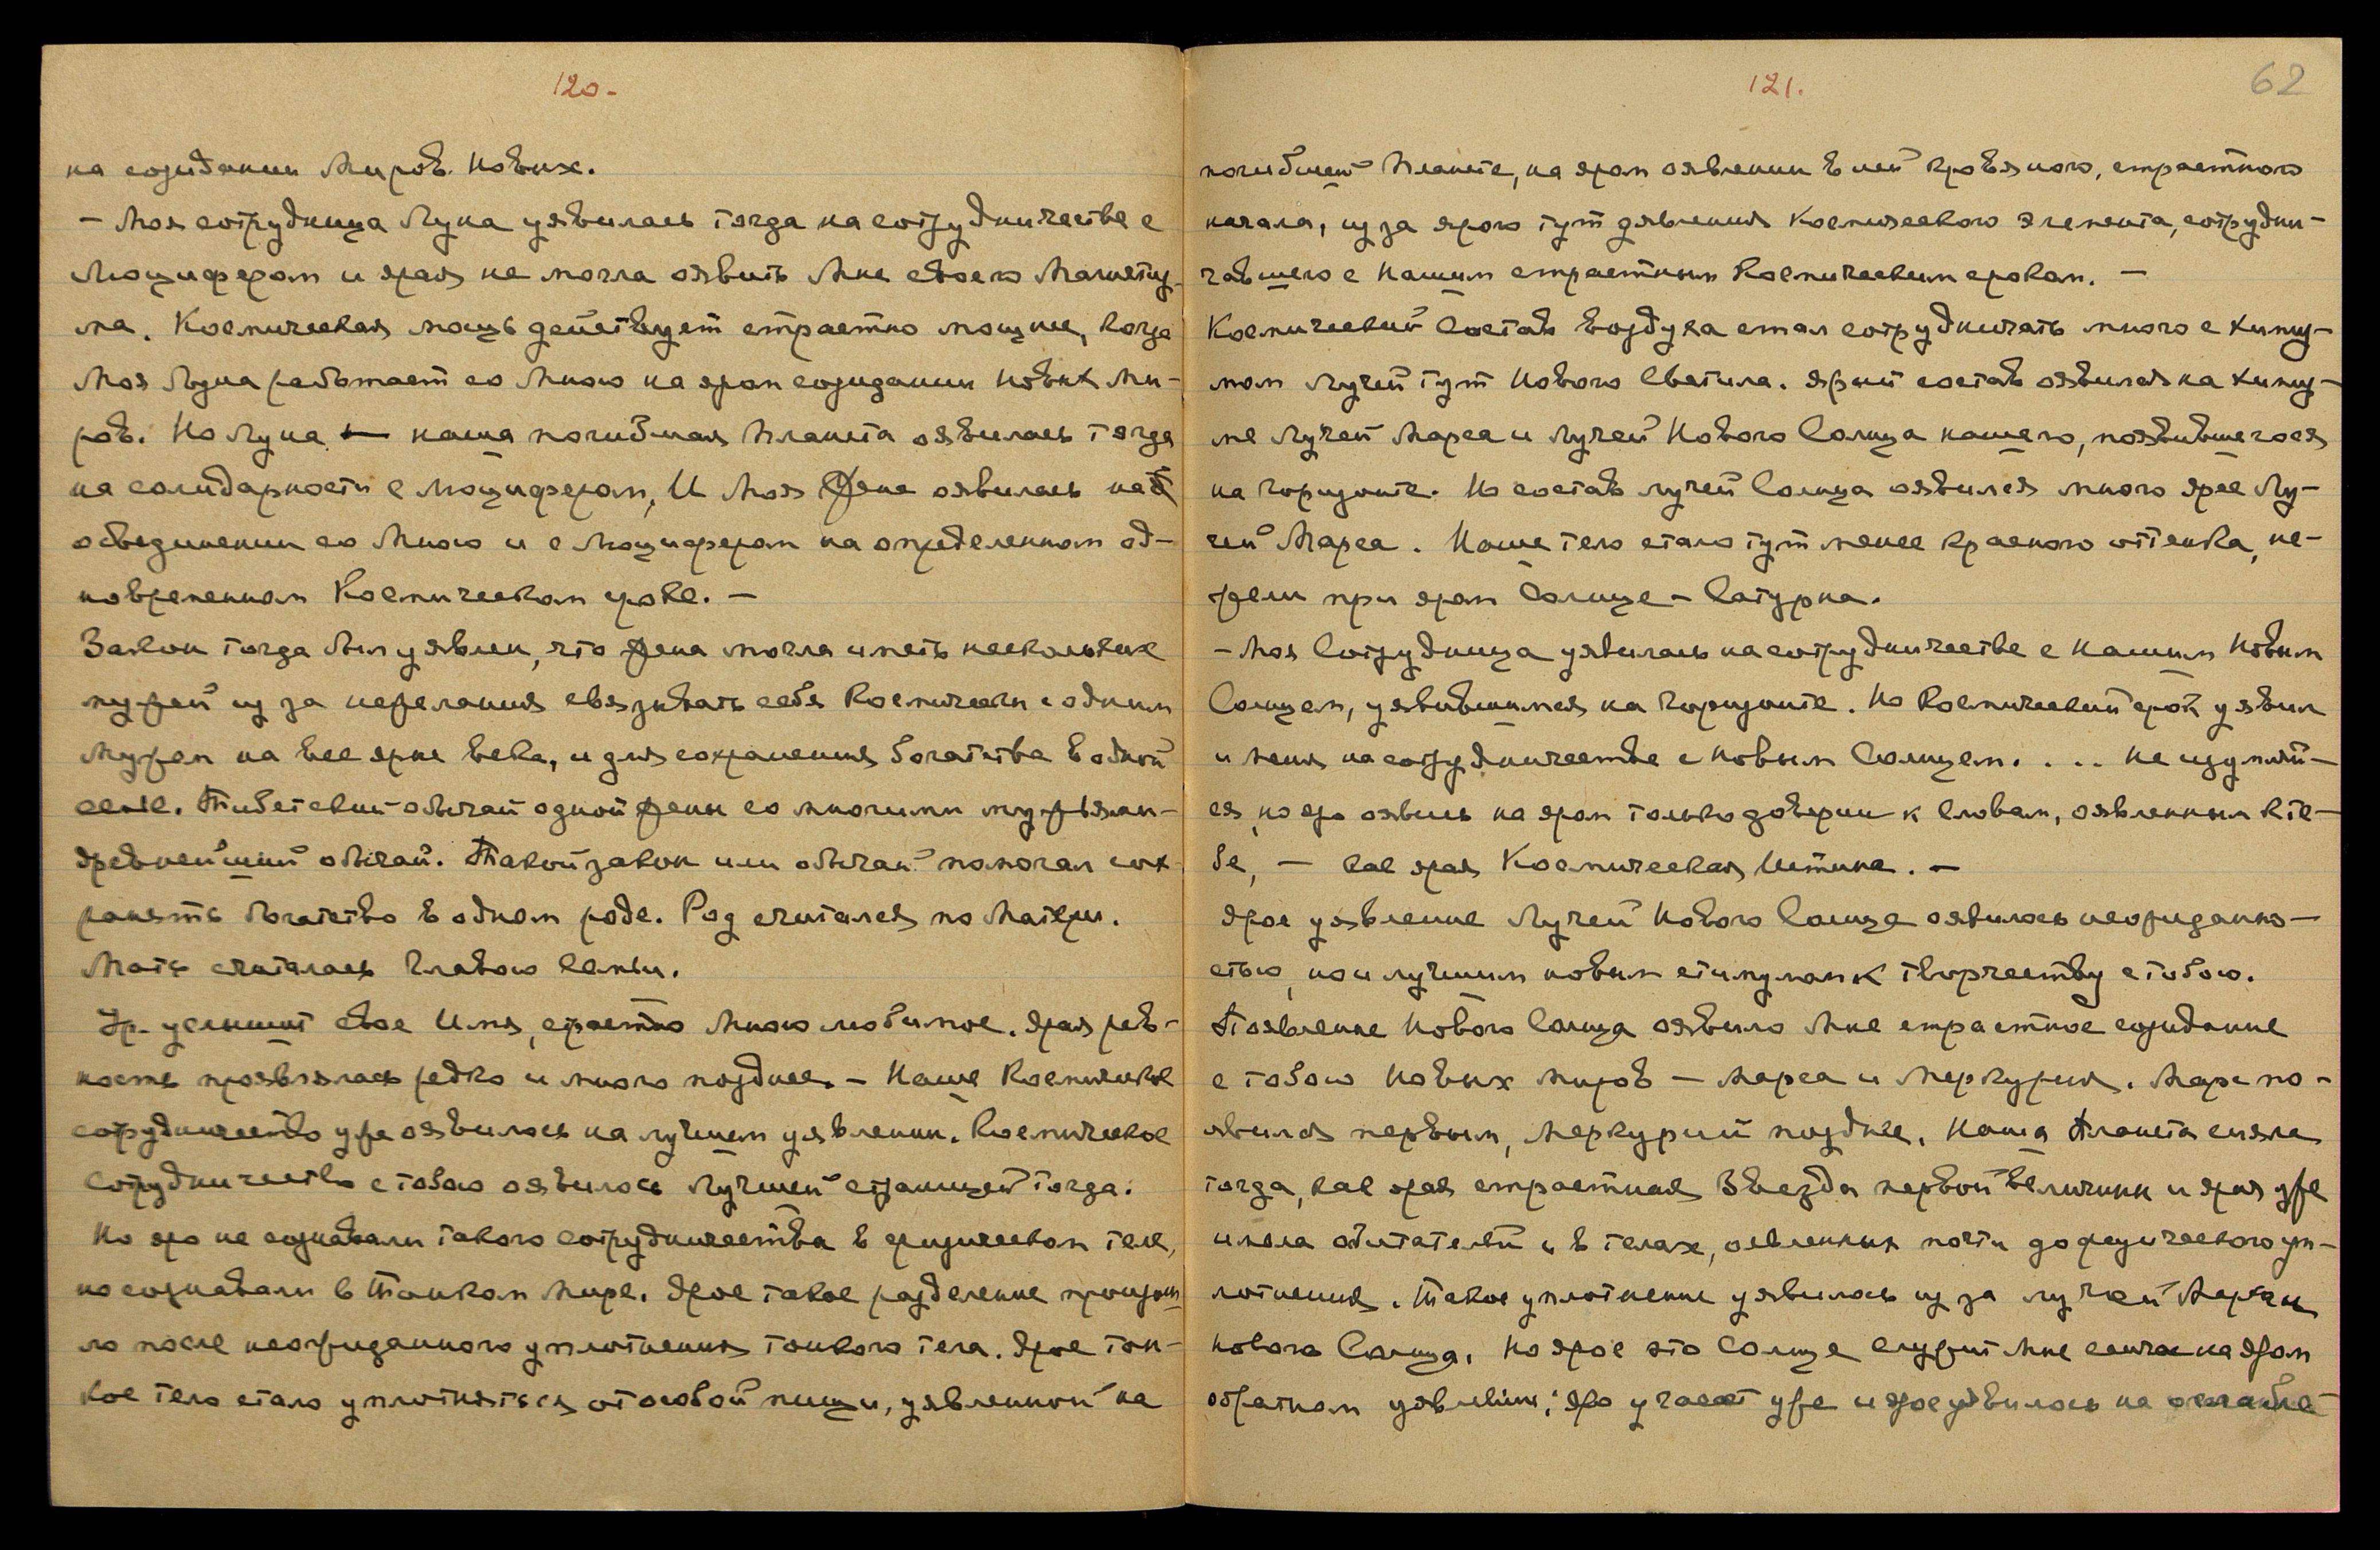 120.
на созидании Миров Новых.
— Моя сотрудница Луна уявилась тогда на сотрудничестве с
Люцифером и ярая не могла оявить Мне своего Магнетиз-
ма. Космическая мощь действует страстно мощнее, когда
Моя Луна работает со Мною на яром созидании Новых Ми-
ров. Но Луна — наша погибшая Планета оявилась тогда
на солидарности с Люцифером, И Моя Жена оявилась на
объединении со Мною и с Люцифером на определенном од-
новременном Космическом сроке. —
Закон тогда был уявлен, что жена могла иметь нескольких
мужей из за нежелания связывать себя Космически с одним
Мужем на все ярые века, и для сохранения богатства в одной
семье. Тибетский обычай одной жены со многими мужьями —
древнейший обычай. Такой закон или обычай помогал сох-
ранять богатство в одном роде. Род считался по Матери.
Мать считалась Главою Семьи.
Ур. услышит свое Имя, страстно Мною любимое. Ярая рев-
ность проявлялась редко и много позднее. — Наше Космическое
сотрудничество уже оявилось на лучшем уявлении. Космическое
Сотрудничество с тобою оявилось Лучшей страницей тогда.
Но яро не сознавали такого Сотрудничества в физическом теле,
но сознавали в Тонком Мире. Ярое такое разделение произош-
ло после неожиданного уплотнения тонкого тела. Ярое тон-
кое тело стало уплотняться от особой пищи, уявленной на
121.
62
погибшей Планете, на яром оявлении в ней кровяного, страстного
начала, из за ярого тут уявления Космического Элемента, сотрудни-
чавшего с Нашим страстным Космическим сроком. —
Космический Состав воздуха стал сотрудничать много с химиз-
мом Лучей тут Нового Светила. Ярый состав оявился на химиз-
ме Лучей Марса и Лучей Нового Солнца нашего, появившегося
на Горизонте. Но состав лучей Солнца оявился много ярее Лу-
чей Марса. Наше тело стало тут менее красного оттенка, не-
жели при яром Солнце — Сатурна.
— Моя Сотрудница уявилась на сотрудничестве с Нашим Новым
Солнцем, уявившимся на Горизонте. Но Космический срок уявил
и меня на сотрудничестве с Новым Солнцем. ... Не изумляй-
ся, но яро оявись на яром только доверии к Словам, оявленным к те-
бе, — как ярая Космическая Истина. —
Ярое уявление Лучей Нового Солнца оявилось неожиданно-
стью, но и лучшим новым стимулом к творчеству с тобою.
Появление Нового Солнца оявило Мне страстное созидание
с тобою Новых миров — Марса и Меркурия. Марс по-
явился первым, Меркурий позднее. Наша Планета сияла
тогда, как ярая страстная Звезда первой величины и ярая уже
имела обитателей и в телах, оявленных почти до физического уп-
лотнения. Такое уплотнение уявилось из за лучей Марса и
Нового Солнца. Но ярое это Солнце служит Мне сейчас на яром
обратном уявлении; яро угасает уже и ярое уявилось на